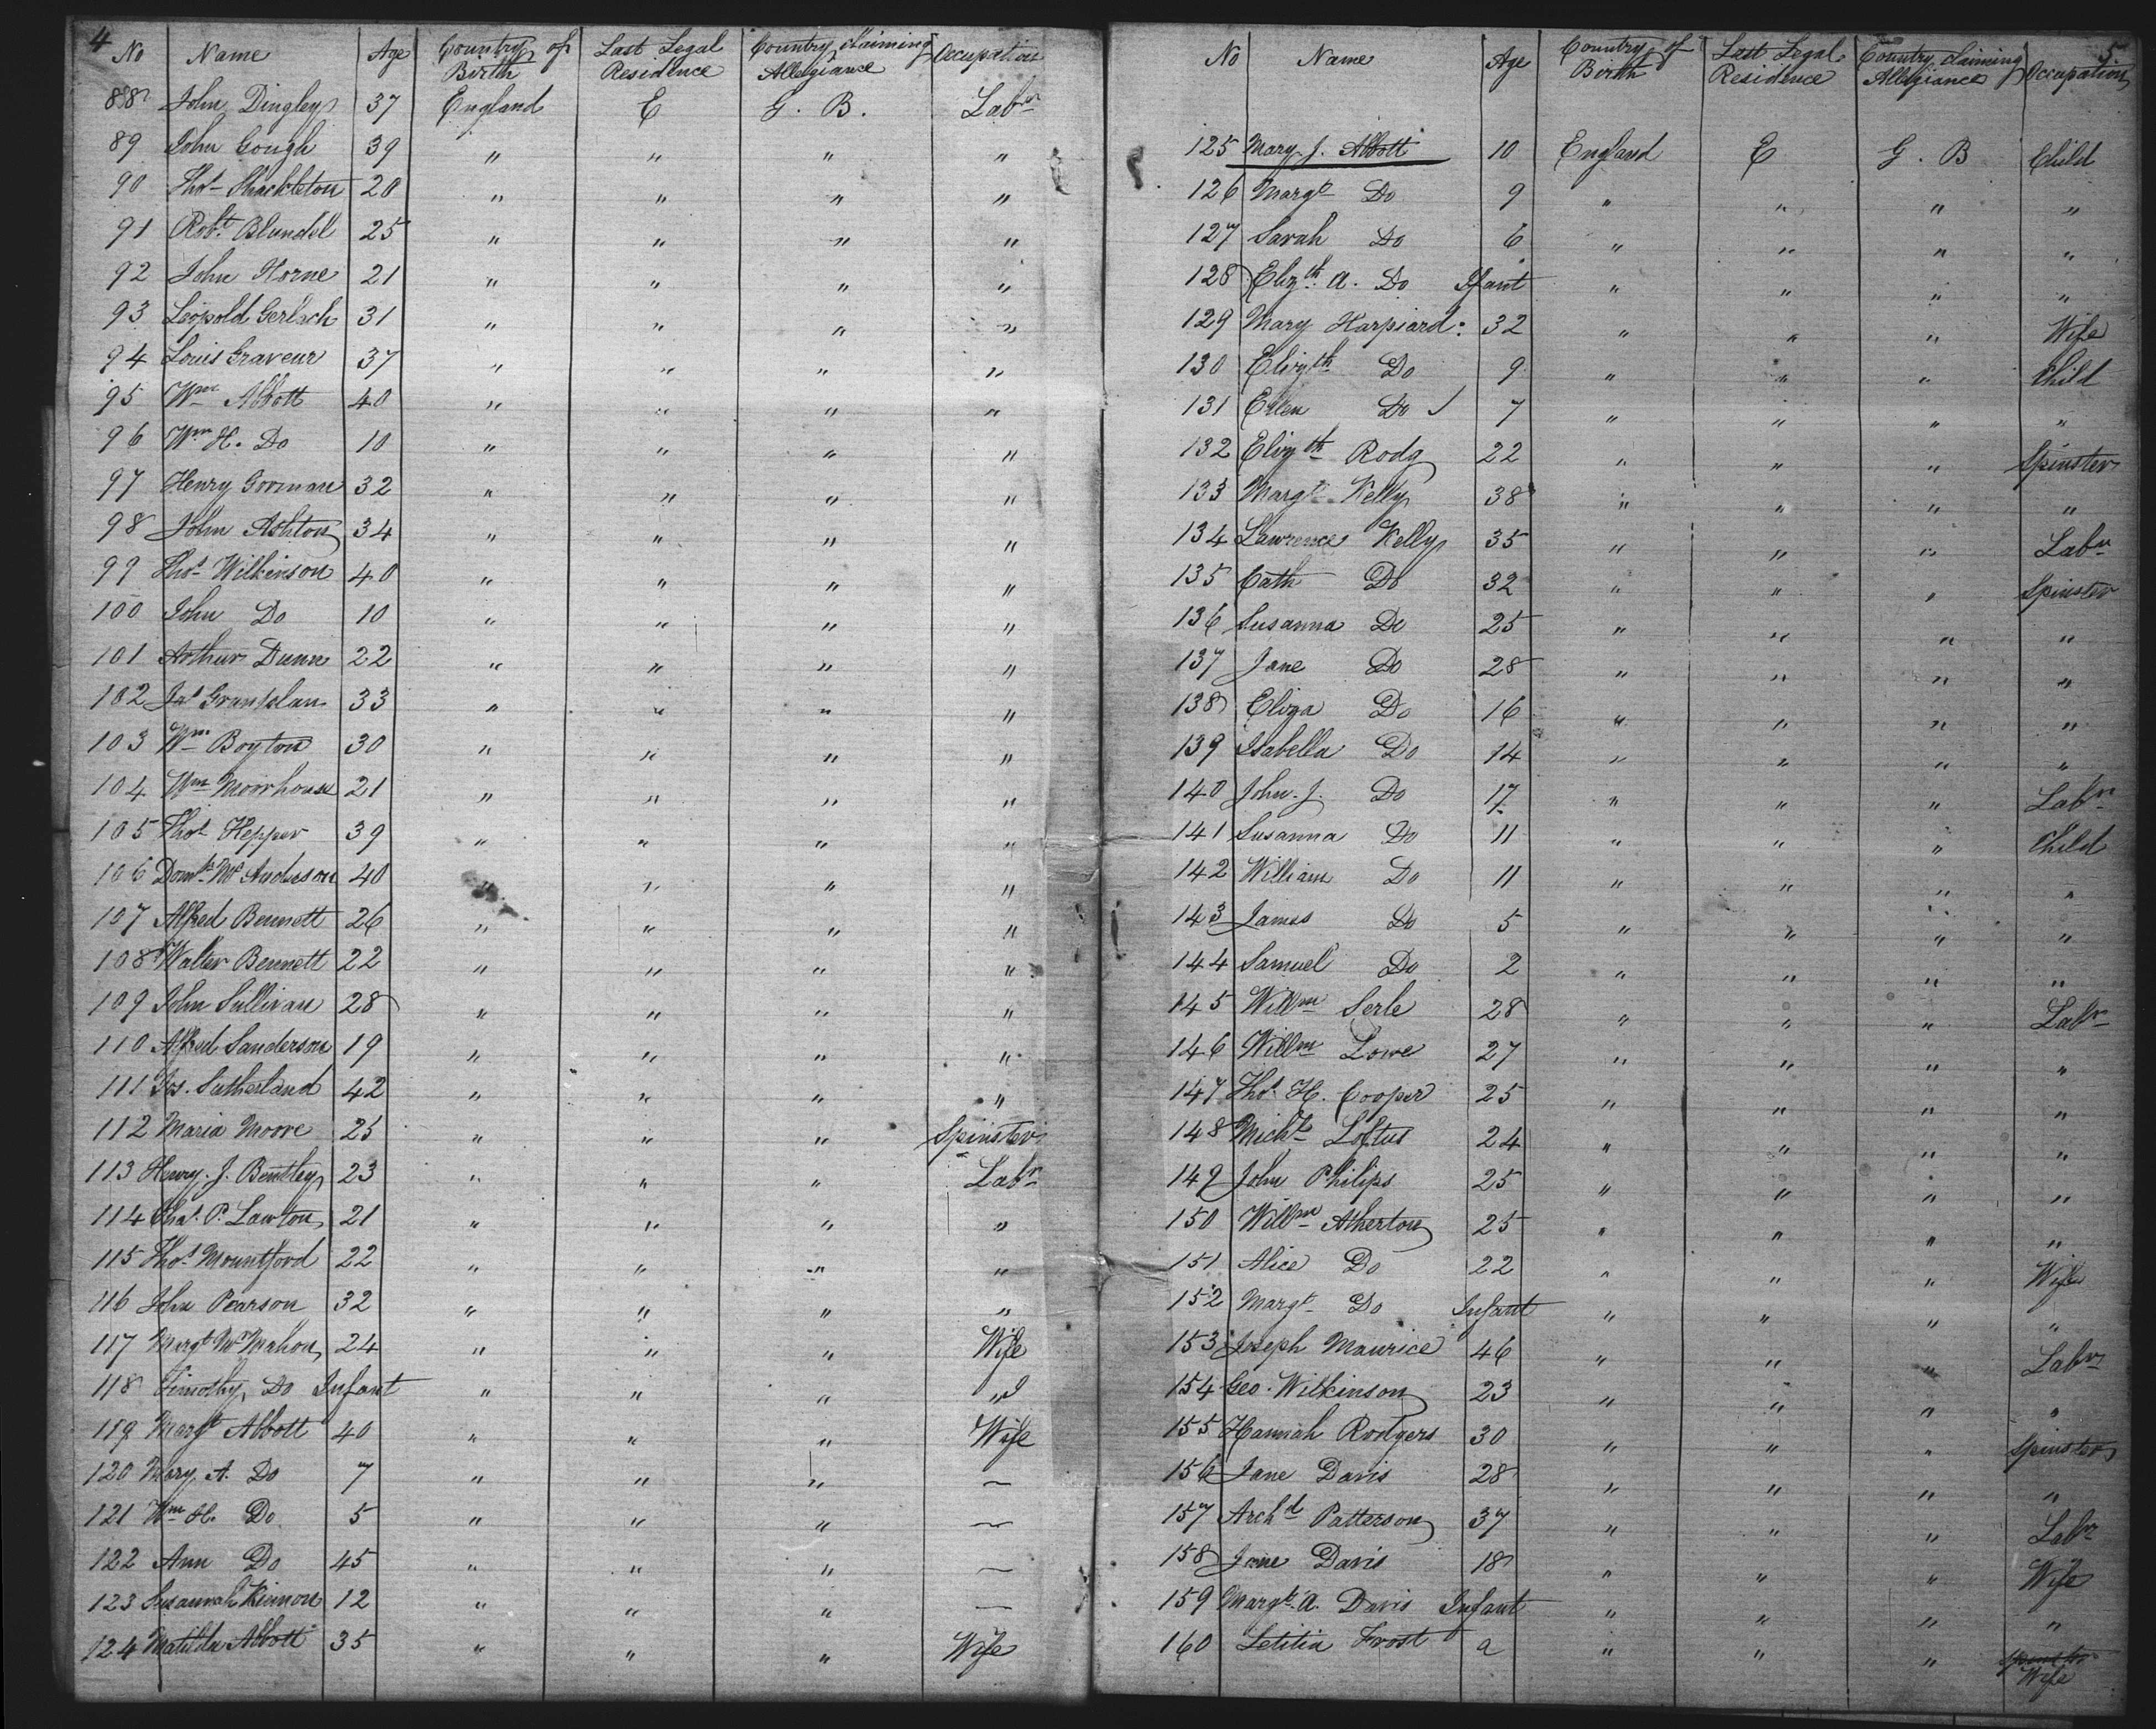 4
No Name Age Country of Birth Last Legal Residence Country claiming Allegiance Occupation
88 John Dingley 37 England E G. B. Labr
89 John Gough 39 " " " "
90 Thos Shackleton 20 " " " "
91 Robt. Blundel 25 " " " "
92 John Horne 21 " " " "
93 Leopold Gerlach 31 " " " "
94 Louis Graveur 37 " " " "
95 Wm Abbott 40 " " " "
96 Wm H. Do 10 " " " "
97 Henry Gorman 32 " " " "
98 John Ashton 34 " " " "
99 Thos Wilkinson 40 " " " "
100 John Do 10 " " " "
101 Arthur Dunn 22 " " " "
102 Jas 33 " " " "
103 Wm Boyton 30 " " " "
104 Wm Moorhouse 21 " " " "
105 Thos Hepper 39 " " " "
106 Domk Mc Anderson 40 " " " "
107 Alfred Bennett 26 " " " "
108 Walter Bennett 22 " " " "
109 John Sullivan 28 " " " "
110 Alfred Sanderson 19 " " " "
111 Jos. Sutherland 42 " " " "
112 Maria Moore 25 " " " Spinster
113 Henry. J. Bentley 23 " " " Labr
114 Chas. P. Lawton 21 " " " "
115 Thos Mountford 22 " " " "
116 John Pearson 32 " " " "
117 Margt McMahon 24 " " " Wife
118 Timothy Do Infant " " " "
119 Margt Abbott 40 " " " Wife
120 Mary A. Do 7 " " " —
121 Wm H. Do 5 " " " —
122 Ann Do 45 " " " —
123 Susannah Kinnon 12 " " " —
124 Matilda Abbott 35 " " " Wife
5.
No Name Age Country of Birth Last Legal Residence Country claiming Allegiance Occupation
125 Mary J. Abbott 10 England E G. B Child
126 Margt Do 9 " " " "
127 Sarah Do 6 " " " "
128 Elizth. A. Do Ifant " " " "
129 Mary Harpiard: 32 " " " Wife
130 Elizth Do 9 " " " Child
131 Ellen Do 7 " " " "
132 Elizth Rodg 22 " " " Spinster
133 Margt Kelly 38 " " " "
134 Lawrence Kelly 35 " " " Labr
135 Cath Do 32 " " " Spinster
136 Susanna Do 25 " " " "
137 Jane Do 28 " " " "
138 Eliza Do 16 " " " "
139 Isabella Do 14 " " " "
140 John. J. Do 17 " " " Labr
141 Susanna Do 11 " " " Child
142 William Do 11 " " " "
143 James Do 5 " " " "
144 Samuel Do 2 " " " "
145 Willm Serle 28 " " " Labr
146 Willm Lowe 27 " " " "
147 Thos. H. Cooper 25 " " " "
148 Michl Loftus 24 " " " "
149 John Philips 25 " " " "
150 Willm Atherton 25 " " " "
151 Alice Do 22 " " " Wife
152 Margt Do Infant " " " "
153 Joseph Maurice 46 " " " Labr
154 Geo. Wilkinson 23 " " " "
155 Hannah Rodgers 30 " " " Spinster
156 Jane Davis 28 " " " "
157 Archd Patterson 37 " " " Labr
158 Jane Davis 18 " " " Wife
159 Margt. A. Davis Infant " " " "
160 Letitia Frost a " " " Spinster
Wife